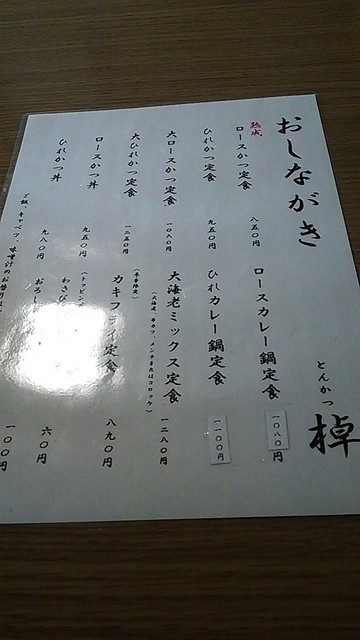 おしながき
とんかつ 棹
熟成
ロースかつ定食 八五〇円
ひれかつ定食 九五〇円
大ロースかつ定食 一〇八〇円
大ひれかつ定食 一二五〇円
ロースかつ丼 九五〇円
ひれかつ丼 九八〇円
ご飯、キャベツ、味噌汁のお替りは
ロースカレー鍋定食 一〇八〇円
ひれカレー鍋定食 一一〇〇円
大海老ミックス定食 一二八〇円
(大海老、串カツ、メンチまたはコロッケ)
(冬季限定)
カキフライ定食 八九〇円
(トッピン
わさび
おろし 六〇円
一〇〇円